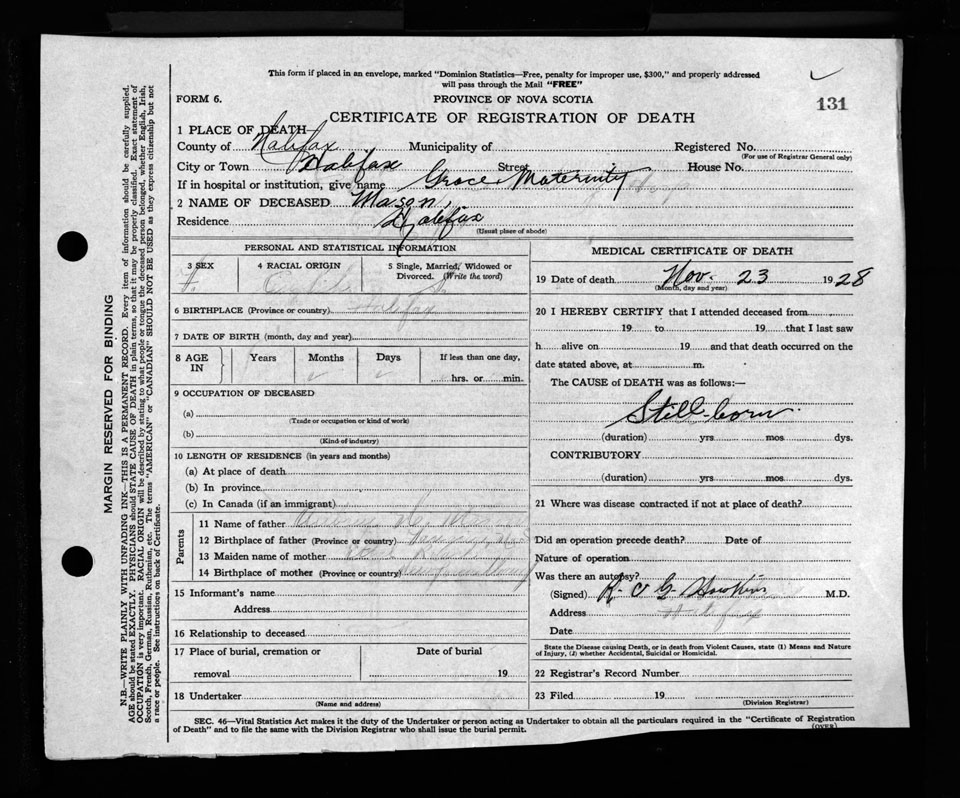 This form if placed in an envelope, marked "Dominion Statistics—Free, penalty for improper use, $300," and properly addressed
will pass through the Mail "FREE"
FORM 6.
PROVINCE OF NOVA SCOTIA
131
CERTIFICATE OF REGISTRATION OF DEATH
1 PLACE OF DEATH—
County of Halifax Municipality of Registered No.
(For use of Registrar General only)
City or Town Halifax Street House No.
If in hospital or institution, give name Grace Maternity
2 NAME OF DECEASED Mason,
Residence Halifax
(Usual place of abode)
PERSONAL AND STATISTICAL INFORMATION
3 SEX 4 RACIAL ORIGIN 5 Single, Married, Widowed or
Divorced. (Write the word)
F. English S.
6 BIRTHPLACE (Province or country) Halifax
7 DATE OF BIRTH (month, day and year)
8 AGE IN Years Months Days If less than one day,
hrs. or min.
9 OCCUPATION OF DECEASED
(a)
(Trade or occupation or kind of work)
(b)
(Kind of industry)
10 LENGTH OF RESIDENCE (in years and months)
(a) At place of death
(b) In province
(c) In Canada (if an immigrant)
Parents
11 Name of father
12 Birthplace of father (Province or country)
13 Maiden name of mother
14 Birthplace of mother (Province or country)
15 Informant's name
Address
16 Relationship to deceased
17 Place of burial, cremation or
removal
Date of burial
19
18 Undertaker
(Name and address)
MEDICAL CERTIFICATE OF DEATH
19 Date of death Nov. 23 1928
(Month, day and year)
20 I HEREBY CERTIFY that I attended deceased from
19 to 19 that I last saw
h alive on 19 and that death occurred on the
date stated above, at m.
The CAUSE of DEATH was as follows:—
Still-born
(duration) yrs mos dys.
CONTRIBUTORY
(duration) yrs mos dys.
21 Where was disease contracted if not at place of death?
Did an operation precede death? Date of
Nature of operation
Was there an autopsy?
(Signed) R. V G. Hawkins M.D.
Address Halifax
Date
State the Disease causing Death, or in death from Violent Causes, state (1) Means and Nature
of Injury, (2) whether Accidental, Suicidal or Homicidal.
22 Registrar's Record Number
23 Filed 19
(Division Registrar)
SEC. 46—Vital Statistics Act makes it the duty of the Undertaker or person acting as Undertaker to obtain all the particulars required in the "Certificate of Registration
of Death" and to file the same with the Division Registrar who shall issue the burial permit.
(OVER)
MARGIN RESERVED FOR BINDING
N.B.—WRITE PLAINLY WITH UNFADING INK—THIS IS A PERMANENT RECORD. Every item of information should be carefully supplied.
AGE should be stated EXACTLY. PHYSICIANS should STATE CAUSE OF DEATH in plain terms, so that it may be properly classified. Exact statement of
OCCUPATION is very important. RACIAL ORIGIN will be described by stating to what people or tongue the deceased person belonged, whether English, Irish,
Scotch, French, German, Russian, Ruthenian, etc. The terms "AMERICAN" or "CANADIAN" SHOULD NOT BE USED as they express citizenship but not
a race or people. See instructions on back of Certificate.